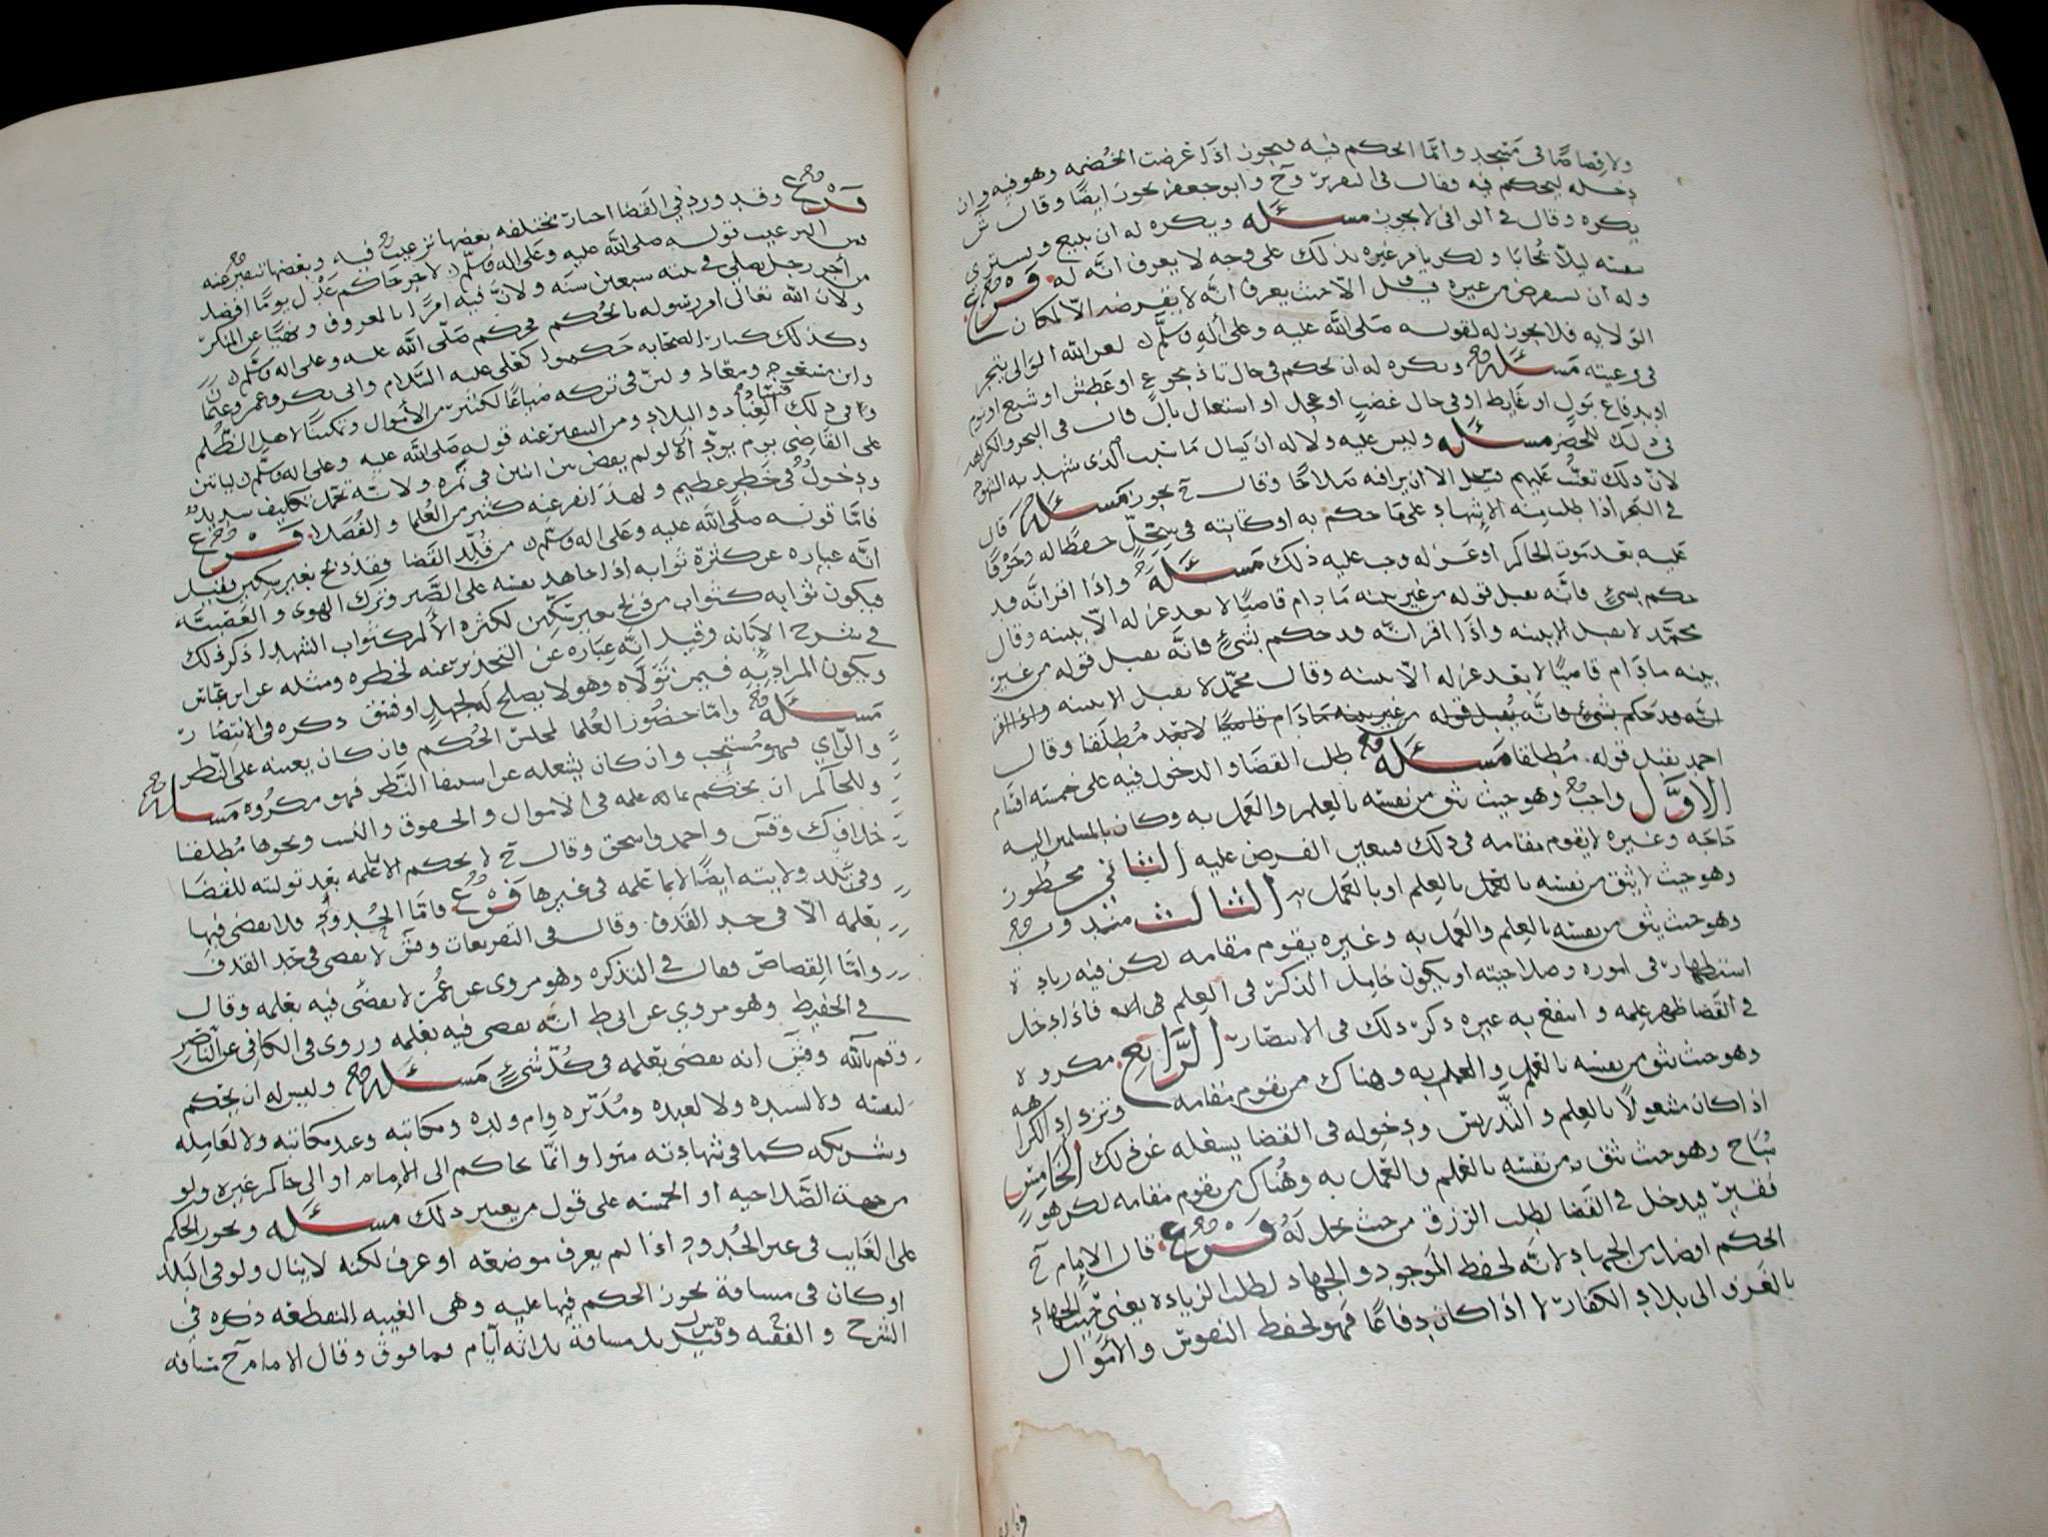 ولا قصاصا في مسجد وانما الحكم فيه فيجوز اذا عرضت الخصمه وهو فيه وان
دخله ليحكم فيه فقال في التقرير وح وابو جعفر يجوز ايضا وقال ش
يكره وقال في الوافي لا يجوز مسئله ويكره له ان يبيع ويشتري
بنفسه ليلا يحابا ولكن يامر غيره بذلك على وجه لا يعرف انه له فرع
وله ان يستقرض من غيره قيل الا حيث يعرف انه لا يقرضه الا لمكان
الولايه فلا يجوز له لقوله صلى الله عليه وعلى آله وسلم لعن الله الوالي يتجر
في رعيته مسئله ويكره له ان يحكم في حال تاذ بجوع او عطش او شبع او نوم
او بدفاع بول او غايط او في حال غضب او عجل او اشتعال بال قال في البحر والكراهه
في ذلك للحضر مسئله وليس عليه ولا له ان يسال ما سبب الذي شهد به الشهود
لان ذلك تعنت عليهم قيل الا ان يرا فيه صلاحا وقال ح يجوز مسئله قال
في البحر اذا طلب منه الاشهاد على ما حكم به او كتابته في سجل حفظا له وخوفا
عليه بعد موت الحاكم او عزله وجب عليه ذلك مسئله واذا اقر انه قد
حكم بشيء فانه يقبل قوله من غير بينه ما دام قاضيا لا بعد عزله الا ببينه وقال
محمد لا يقبل الا ببينه واذا اقر انه قد حكم بشيء فانه يقبل قوله من غير
بينه ما دام قاضيا لا بعد عزله الا ببينه وقال محمد لا يقبل الا ببينه واذا اقر
انه قد حكم بشيء فانه يقبل قوله من غير بينه ما دام قاضيا لا بعد مطلقا وقال
احمد يقبل قوله مطلقا مسئله طلب القضا والدخول فيه على خمسه اقسام
الاول واجب وهو حيث يثق من نفسه بالعلم والعمل به وكان بالمسلمين اليه
حاجه وغيره لا يقوم مقامه في ذلك فيتعين الفرض عليه الثاني محظور
وهو حيث لا يثق من نفسه بالعلم او بالعمل به الثالث مندوب
وهو حيث يثق من نفسه بالعلم والعمل به وغيره يقوم مقامه لكن فيه زياده
استظهار في اموره وصلاحيته او يكون خامل الذكر في العلم فاذا دخل
في القضا ظهر علمه وانتفع به غيره ذكر ذلك في الانتصار الرابع مكروه
وهو حيث يثق من نفسه بالعلم والعمل به وهناك من يقوم مقامه وتزداد الكراهه
اذا كان مشغولا بالعلم والتدريس ودخوله في القضا يشغله عن ذلك الخامس
مباح وهو حيث يثق من نفسه بالعلم والعمل به وهناك من يقوم مقامه لكن هو
فقير فيدخل في القضا لطلب الرزق من حيث يحل له فرع قال الامام ح
الحكم افضل من الجهاد لانه لحفظ الموجود والجهاد لطلب الزياده يعني حيث الجهاد
بالغزو الى بلاد الكفار لا اذا كان دفاعا فهو لحفظ النفوس والاموال
فرع وقد ورد في القضا اخبار مختلفه بعضها ترغيب فيه وبعضها تنفير عنه
من الترغيب قوله صلى الله عليه وعلى اله وسلم لاجر حاكم عدل يوما افضل
من اجر رجل يصلي في بيته سبعين سنه ولان فيه امرا بالمعروف ونهيا عن المنكر
ولان الله تعالى امر رسوله بالحكم فحكم صلى الله عليه وعلى اله وسلم
وكذلك كبار الصحابه حكموا كعلي عليه السلام وابي بكر وعمر وعثمان
وابن مسعود ومعاذ
وفي ذلك العباد والبلاد ومن التنفير عنه قوله صلى الله عليه وعلى اله وسلم لياتين
على القاضي يوم يود ان لو لم يقض بين اثنين في تمره ولانه تحمل تكليف شديد
ودخول في خطر عظيم ولهذا نفر عنه كثير من العلما والفضلا فرع
فاما قوله صلى الله عليه وعلى اله وسلم من قلد القضا فقد ذبح بغير سكين فقيل
انه عباره عن كثرة ثوابه اذا جاهد نفسه على الصبر وترك الهوى والغضب
فيكون ثوابه كثواب من ذبح بغير سكين لكثره الالم كثواب الشهدا ذكر ذلك
في شرح الابانه وقيل انه عباره عن التحذير عنه لخطره ومثله عن ابن عباس
ويكون المراد به فيمن تولاه وهو لا يصلح له لجهل او فسق ذكره في الانتصار
مسئله واما حضور العلما لمجلس الحكم فان كان يعينه على النظر
والراي فهو مستحب وان كان يشغله عن استيفا النظر فهو مكروه مسئله
وللحاكم ان يحكم بما علمه في الاموال والحقوق والنسب ونحوها مطلقا
خلاف ك وقش واحمد واسحق وقال ح لا يحكم الا بما علمه بعد توليته للقضا
وفي بلد ولايته ايضا لا بما علمه في غيرها فرع فاما الحدود فلا يقضي فيها
بعلمه الا في حد القذف وقال في التفريعات وقش لا يقضي في حد القذف
واما القصاص فقال في التذكره وهو مروي عن عمر لا يقضي فيه بعلمه وقال
في الحفيظ وهو مروي عن ابي ط انه يقضي فيه بعلمه وروى في الكافي عن الناصر
وقم بالله وقش انه يقضي بعلمه في كل شيء مسئله وليس له ان يحكم
لنفسه ولا لسيده ولا لعبده ومدبره وام ولده ومكاتبه وعبد مكاتبه ولا لعامله
وشريكه كما في شهادته سوا وانما يحاكم الى الامام او الى حاكم غيره ولو
من جهة الصلاحيه او الخمسه على قول من يعتبر ذلك مسئله ويجوز الحكم
على الغايب في غير الحدود اذا لم يعرف موضعه او عرف لكنه لا ينال ولو في البلد
او كان في مسافة يجوز الحكم فيها عليه وهي الغيبه المنقطعه ذكره في
الشرح والفقيه وقيل بل مسافة ثلاثه ايام فما فوق وقال الامام ح مسافه